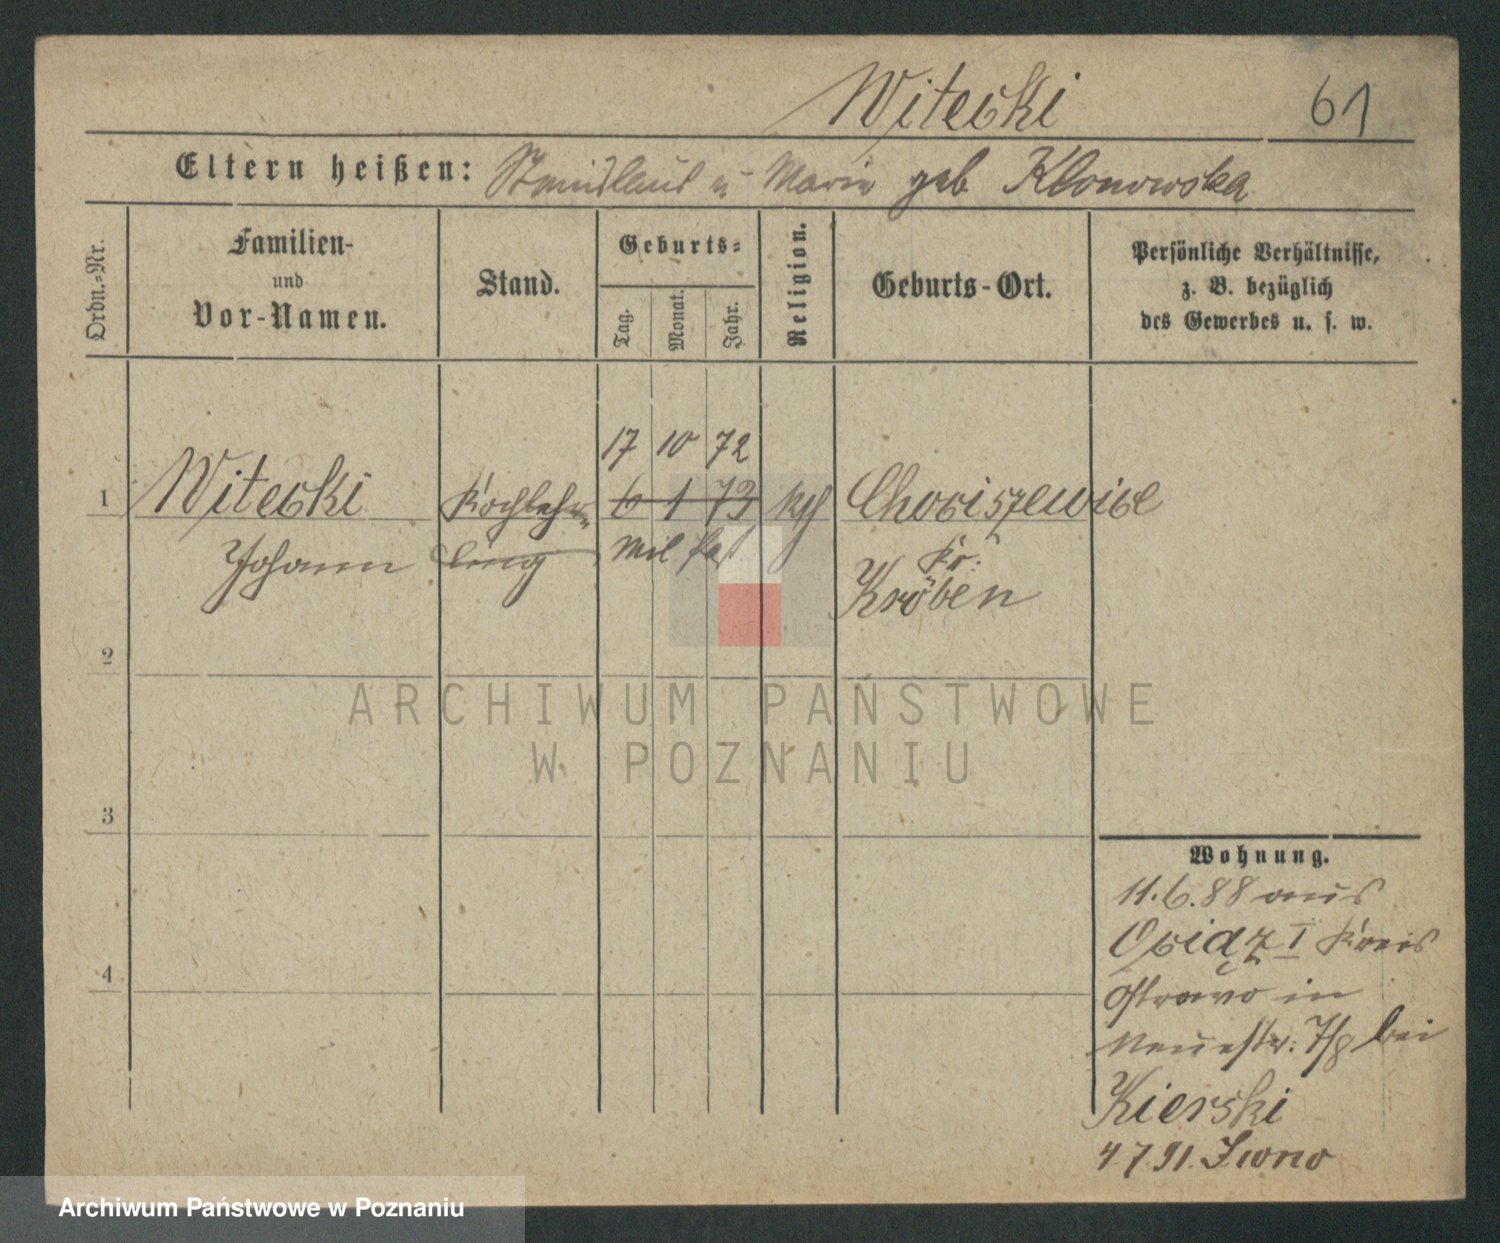 Witecki 61
Eltern heißen: Stanislaus u Marie geb Klonowska
Ordn.-Nr.
Familien-
und
Vor-Namen.
Stand.
Geburts-
Tag.
Monat.
Jahr.
Religion.
Geburts-Ort.
Persönliche Verhältnisse,
z. B. bezüglich
des Gewerbes u. s. w.
17 10 72
1 Witecki Kochlehr- 6 1 73 kth Chociszewice
Johann ling Mil Paß Kr:
Kröben
2
3
4
ARCHIWUM PAŃSTWOWE
W POZNANIU
Wohnung.
11.6.88 aus
Ociąz I Kreis
Ostrowo in
Neuestr. 7/8 bei
Kierski
4 7 91.
Archiwum Państwowe w Poznaniu